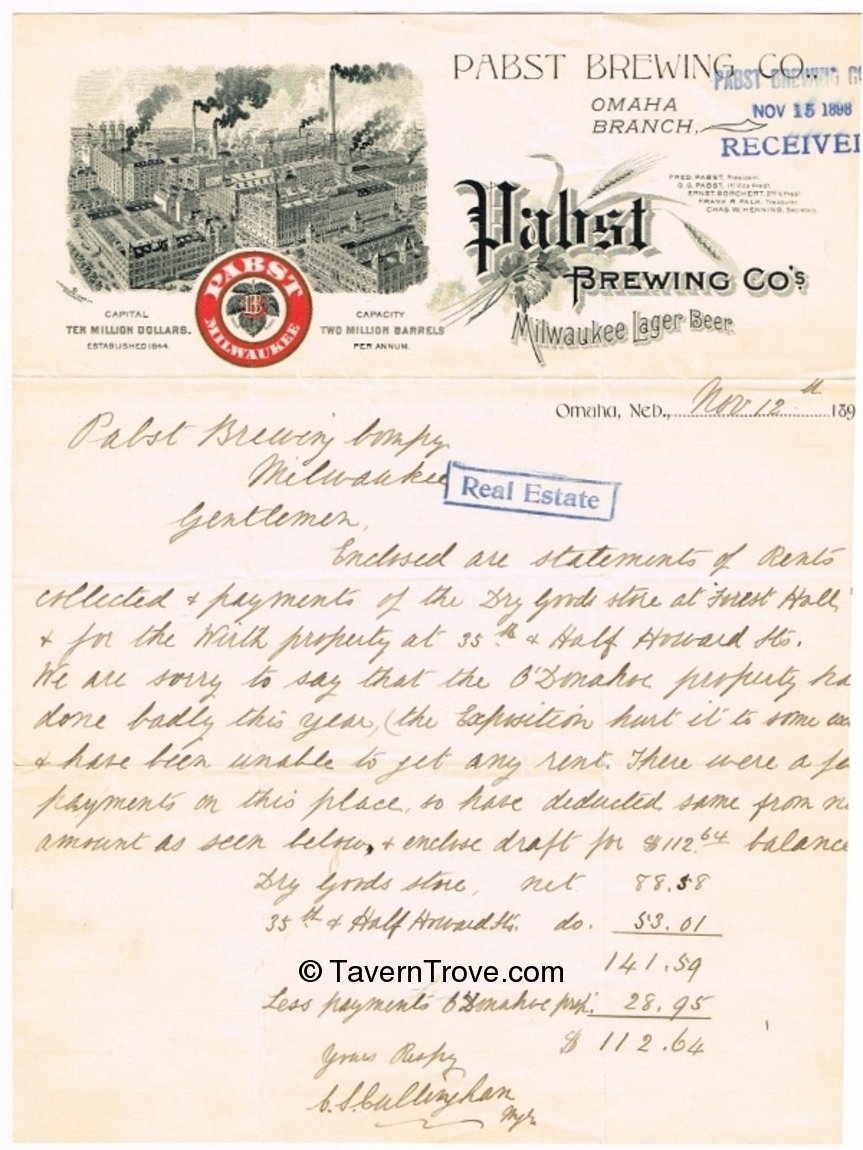 PABST BREWING CO.,
OMAHA
BRANCH,
PABST BREWING CO
NOV 15 1898
RECEIVE
FRED. PABST, President.
G. G. PABST, 1st Vice Prest.
ERNST BORCHERT, 2nd V. Prest.
FRANK R. FALK, Treasurer.
CHAS. W. HENNING, Secretary.
Pabst
BREWING CO'S
Milwaukee Lager Beer.
PABST
B
MILWAUKEE
CAPITAL
TEN MILLION DOLLARS.
ESTABLISHED 1844.
CAPACITY
TWO MILLION BARRELS
PER ANNUM.
Omaha, Neb., Nov 12th 189
Pabst Brewing Compy
Milwaukee
Real Estate
Gentlemen,
Enclosed are statements of Rents
collected & payments of the Dry Goods store at "Forest Hall"
& for the Wirth property at 35th & Half Howard Sts.
We are sorry to say that the O'Donahoe property ha
done badly this year, (the Exposition hurt it to some
& have been unable to get any rent. There were a fe
payments on this place, so have deducted same from
amount as seen below, & enclose draft for $112.64 balance
Dry Goods store, net 88.58
35th & Half Howard Sts. do. 53.01
141.59
© TavernTrove.com
Less payments O'Donahoe prop. 28.95
$ 112.64
Yours Respy
C. S. Cullingham
Mgr.